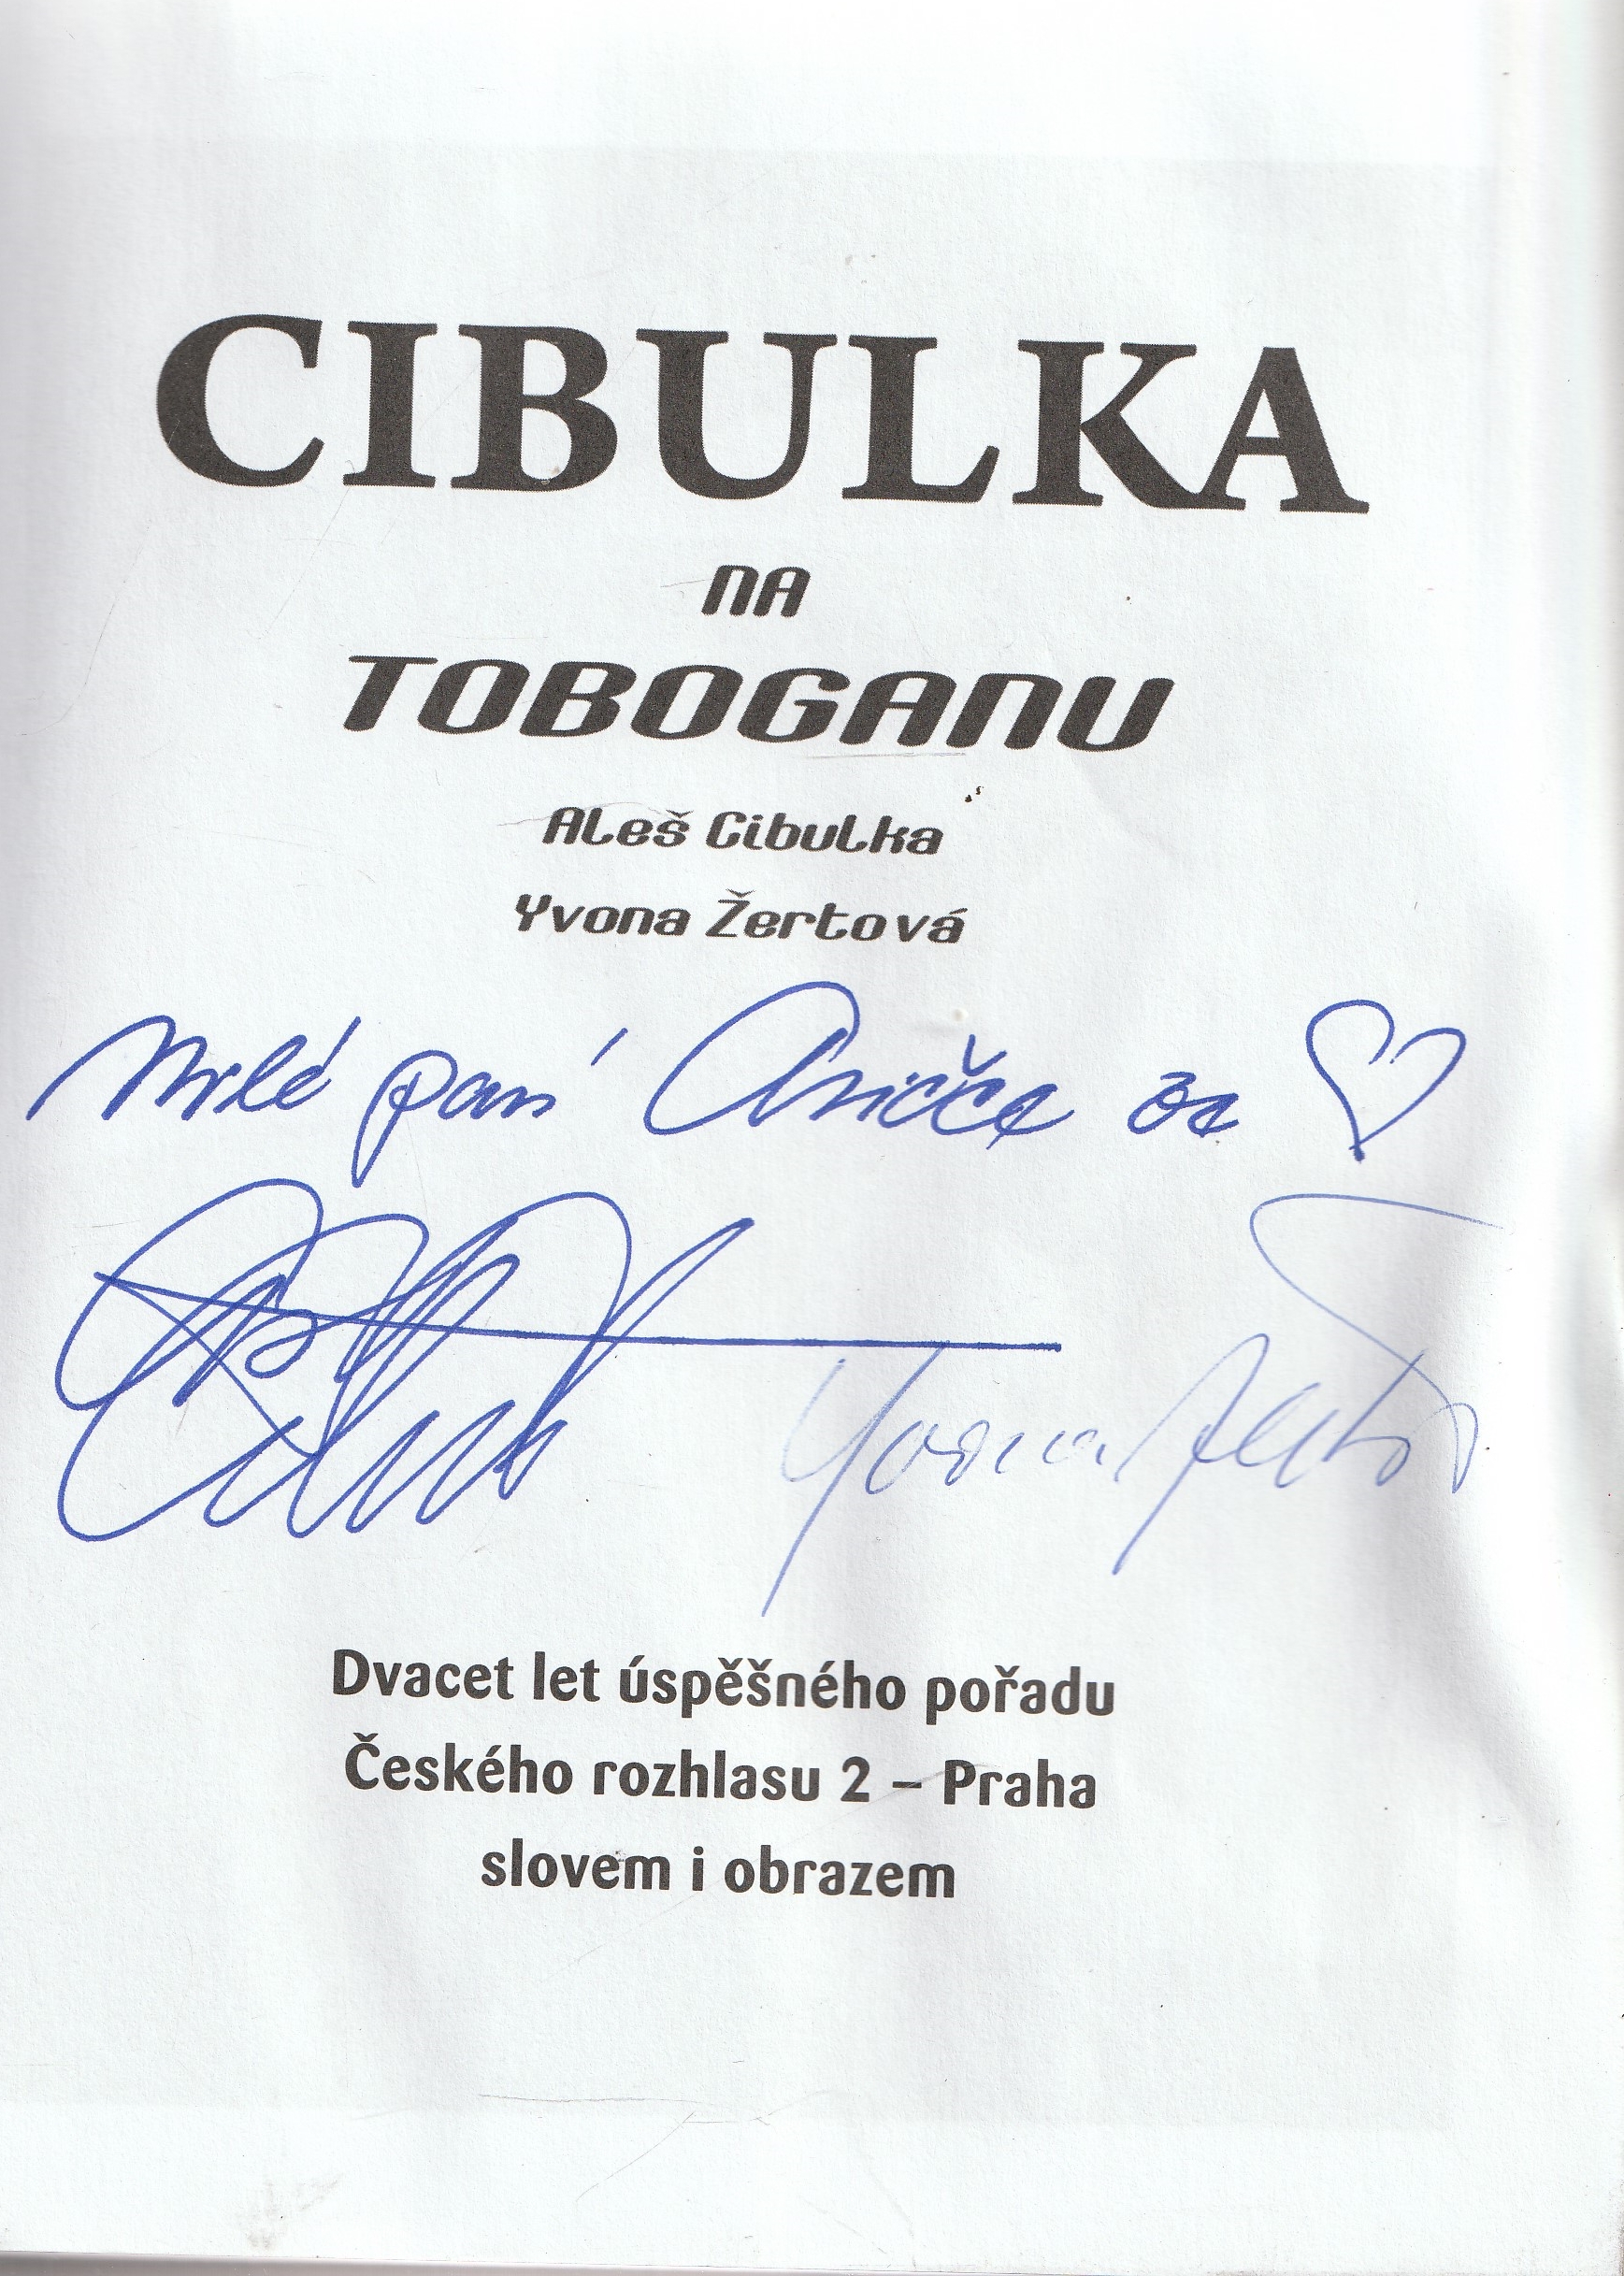 CIBULKA
NA
TOBOGANU
Aleš Cibulka
Yvona Žertová
Milé paní Aničce ze ♡
Yvona Žertová
Dvacet let úspěšného pořadu
Českého rozhlasu 2 – Praha
slovem i obrazem